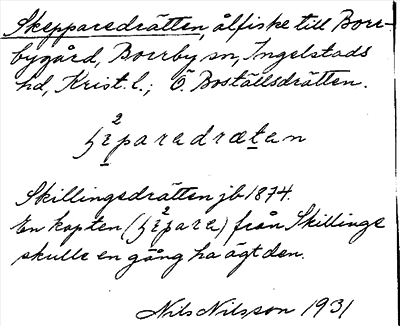 Skepparedrätten, ålfiske till Borr-
bygård, Borrby sn, Ingelstads
hd, Krist. l.; Ö. Boställsdrätten.
Skillingsdrätten jb 1874.
En kapten () från Skillinge
skulle en gång ha ägt den.
Nils Nilsson 1931